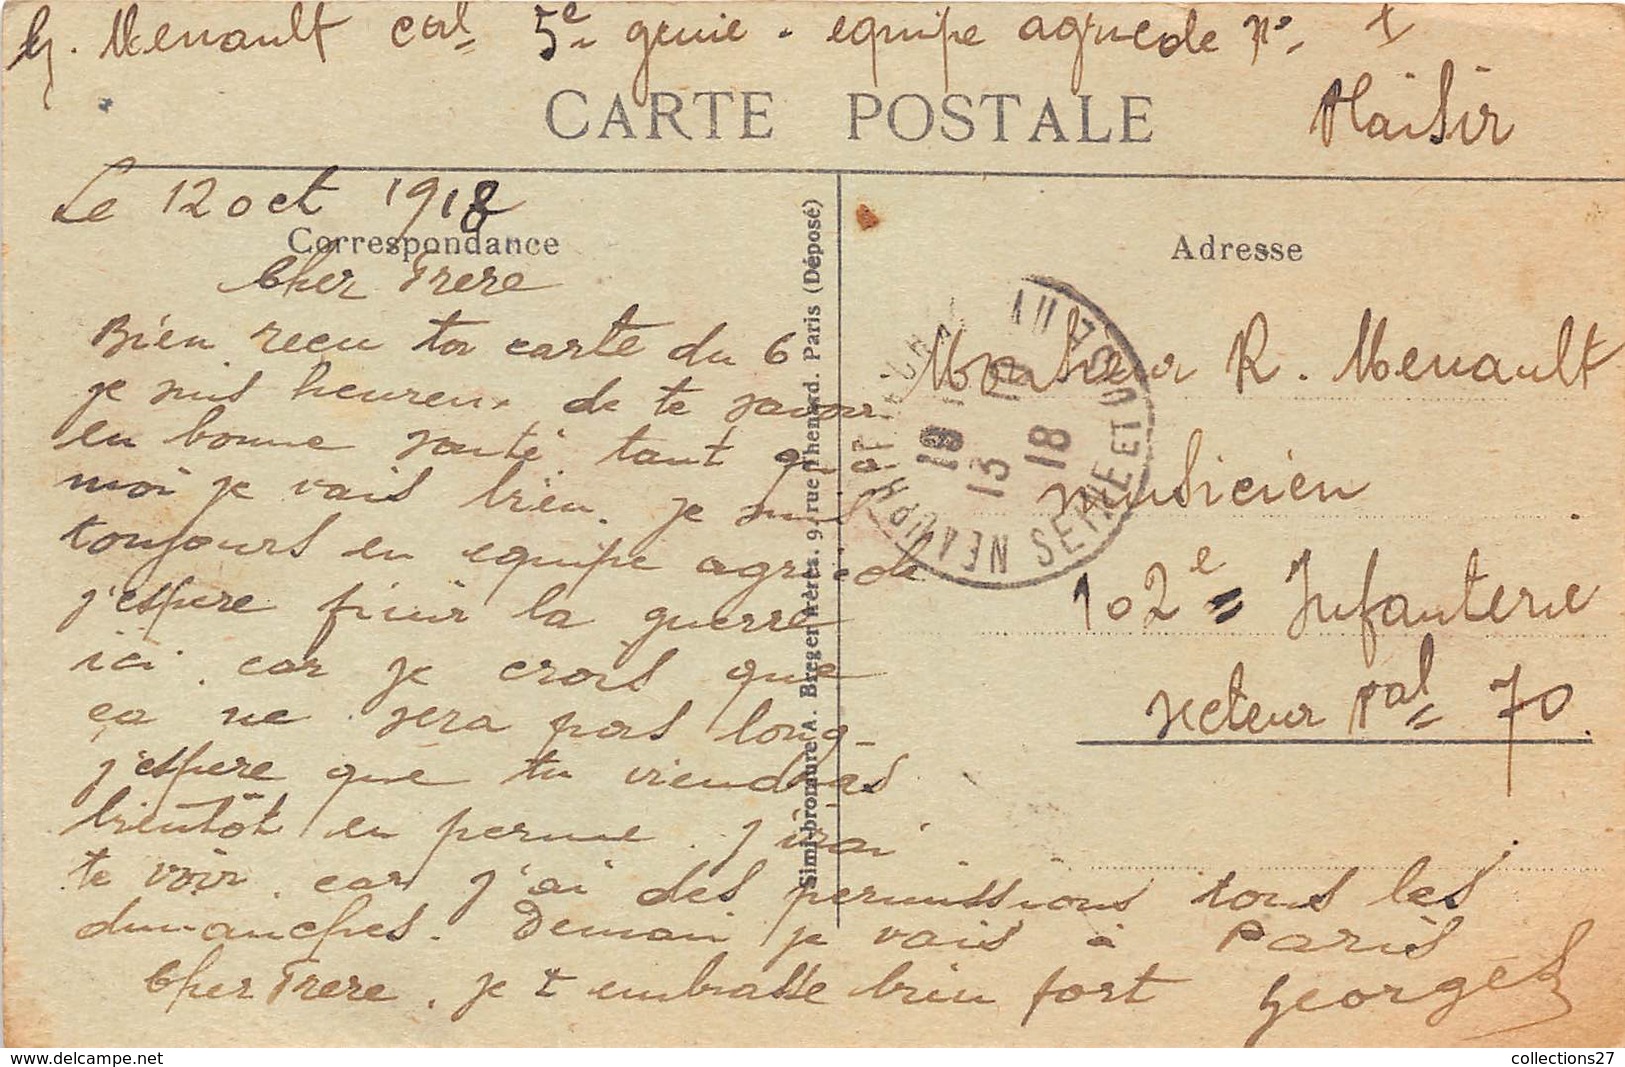 G. Menault cal 5e genie - equipe agricole no 1
Plaisir
CARTE POSTALE
Le 12 oct 1918
Correspondance
Cher Frere
Bien recu ta carte du 6
je suis heureux de te savoir
en bonne santé tant qu'a
moi je vais bien. je suis
toujours en equipe agricole
j'espere finir la guerre
ici. car je crois que
ça ne sera pas long-
j'espere que tu viendras
bientôt en perme. j'irai
te voir. car j'ai des permissions tous les
dimanches. Demain je vais à Paris
Cher Frere. je t embrasse bien fort Georges
Simi-bromure A. Breger frères. 9, rue Thenard. Paris (Déposé)
Adresse
Monsieur R. Menault
musicien
102e Infanterie
secteur pal 70
18
13 10
18
NEAUPHLE
SEINE ET OISE
collections27